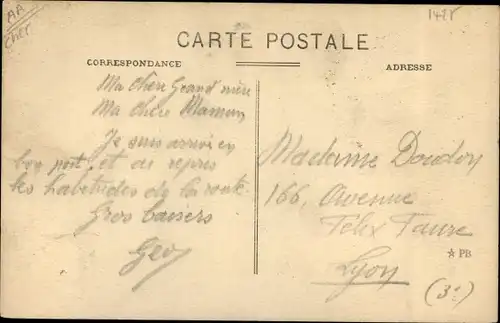 AA
Cher
1425
CARTE POSTALE
CORRESPONDANCE
ADRESSE
Ma chère Grand'mère
Ma chère Maman
Je suis arrivé en
bon port, et ai repris
les habitudes de la route
Gros baisers
Geo
Madame Doudon
166, Avenue
Félix Faure
Lyon
(3e)
☆ PB